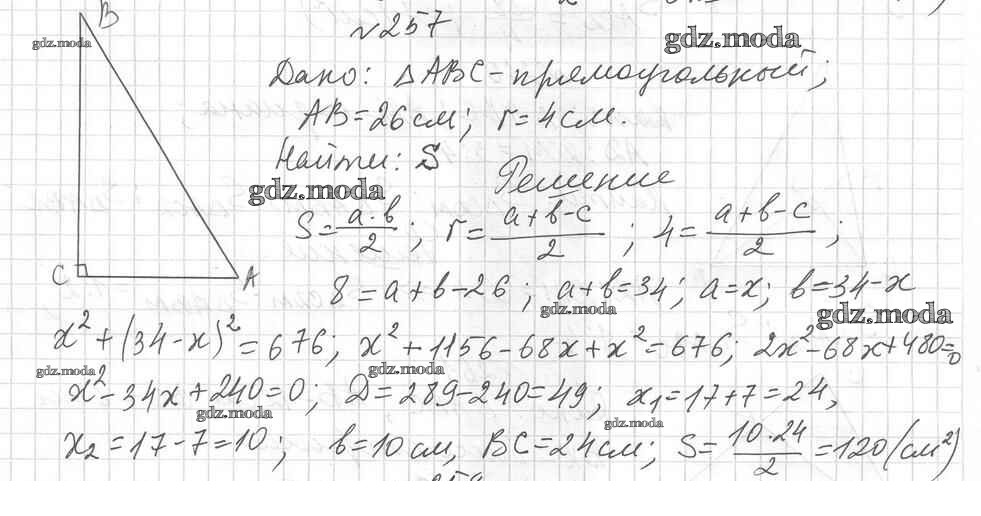 √257
B
gdz.moda
gdz.moda
Дано: △ABC - прямоугольный;
AB = 26 см; r = 4 см.
Найти: S
gdz.moda
Решение
S = a·b/2; r = a+b-c/2; 4 = a+b-c/2;
C A
8 = a+b-26; a+b=34; a=x; b=34-x
gdz.moda
gdz.moda
x² + (34-x)² = 676; x² + 1156 - 68x + x² = 676; 2x² - 68x + 480 = 0
gdz.moda
gdz.moda
x² - 34x + 240 = 0; D = 289 - 240 = 49; x₁ = 17 + 7 = 24,
gdz.moda
gdz.moda
x₂ = 17 - 7 = 10; b = 10 см, BC = 24 см; S = 10·24/2 = 120 (см²)